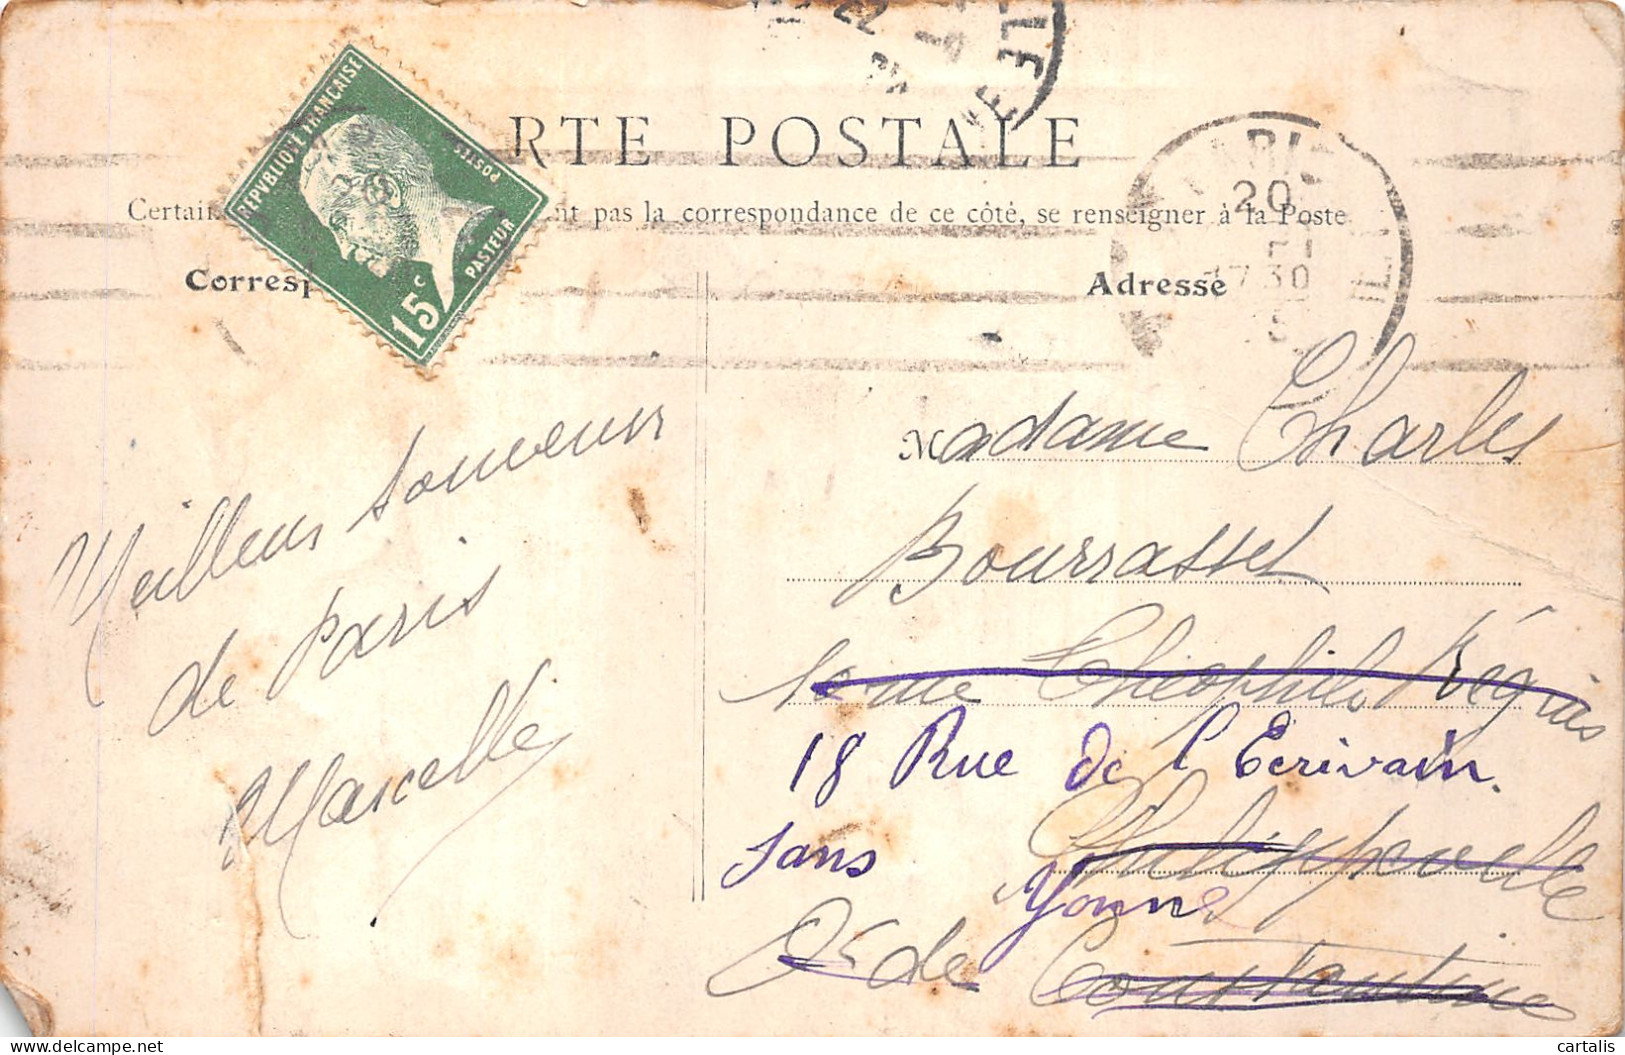 RTE POSTALE
REPVBLIQVE FRANÇAISE
POSTES
PASTEUR
15c
PARIS
20
7 30
Certain nt pas la correspondance de ce côté, se renseigner à la Poste
Corresp
Adresse
Meilleurs souvenir
de Paris
Marcelle
Madame Charles
Bourrasset
rue Théophile Régis
18 Rue de l'Ecrivain.
Philippeville
Sans
Yonne
de Constantine
delcampe.net
cartalis